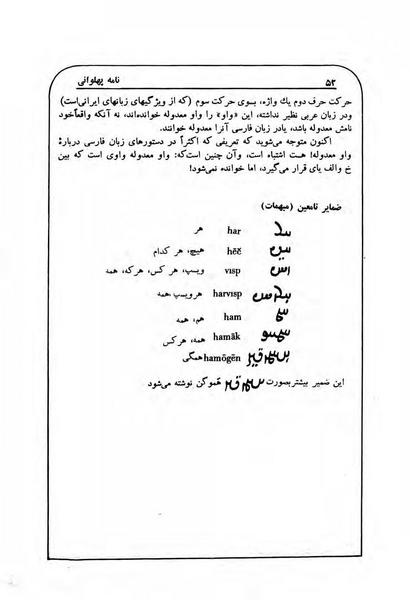 ۵۲ نامه پهلوانی
حرکت حرف دوم یك واژه، بسوی حرکت سوم (که از ویژگیهای زبانهای ایرانی‌است)
ودر زبان عربی نظیر نداشته، این «واو» را واو معدوله خوانده‌اند، نه آنکه واقعاً خود
نامش معدوله باشد، یادر زبان فارسی آنرا معدوله خوانند.
اکنون متوجه می‌شوید که تعریفی که اکثراً در دستورهای زبان فارسی دربارۀ
واو معدوله! هست اشتباه است، وآن چنین است‌که: واو معدوله واوی است که بین
خ والف یای قرار می‌گیرد، اما خوانده نمی‌شود!
ضمایر نامعین (مبهمات)
har هر
hēč هیچ، هر کدام
visp ویسپ، هر کس، هرکه، همه
harvisp هرویسپ، همه
ham هم، همه
hamāk همه، هرکس
hamōgēn همگی
این ضمیر بیشتر بصورت هموگن نوشته می‌شود